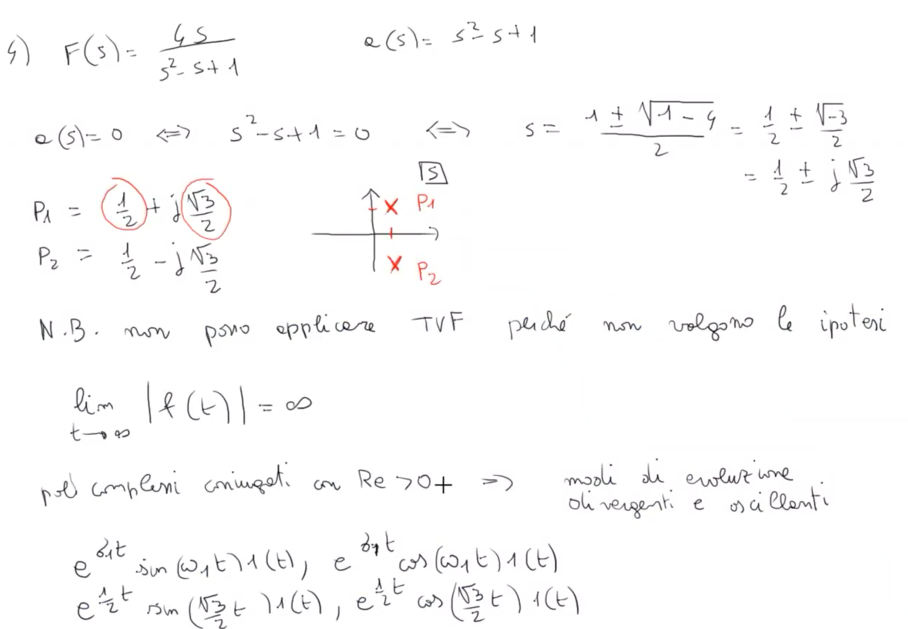 4) F(s) = 4s / (s² - s + 1)    a(s) = s² - s + 1
a(s) = 0 <=> s² - s + 1 = 0 <=> s = (1 ± √(1 - 4)) / 2 = 1/2 ± √-3 / 2
= 1/2 ± j √3/2
P1 = 1/2 + j √3/2
P2 = 1/2 - j √3/2
s
P1
P2
N.B. non posso applicare TVF perché non valgono le ipotesi
lim t→∞ |f(t)| = ∞
poli complessi coniugati con Re > 0+ => modi di evoluzione
divergenti e oscillanti
e^(σ1t) sin(ω1t) 1(t), e^(σ1t) cos(ω1t) 1(t)
e^(1/2 t) sin(√3/2 t) 1(t), e^(1/2 t) cos(√3/2 t) 1(t)